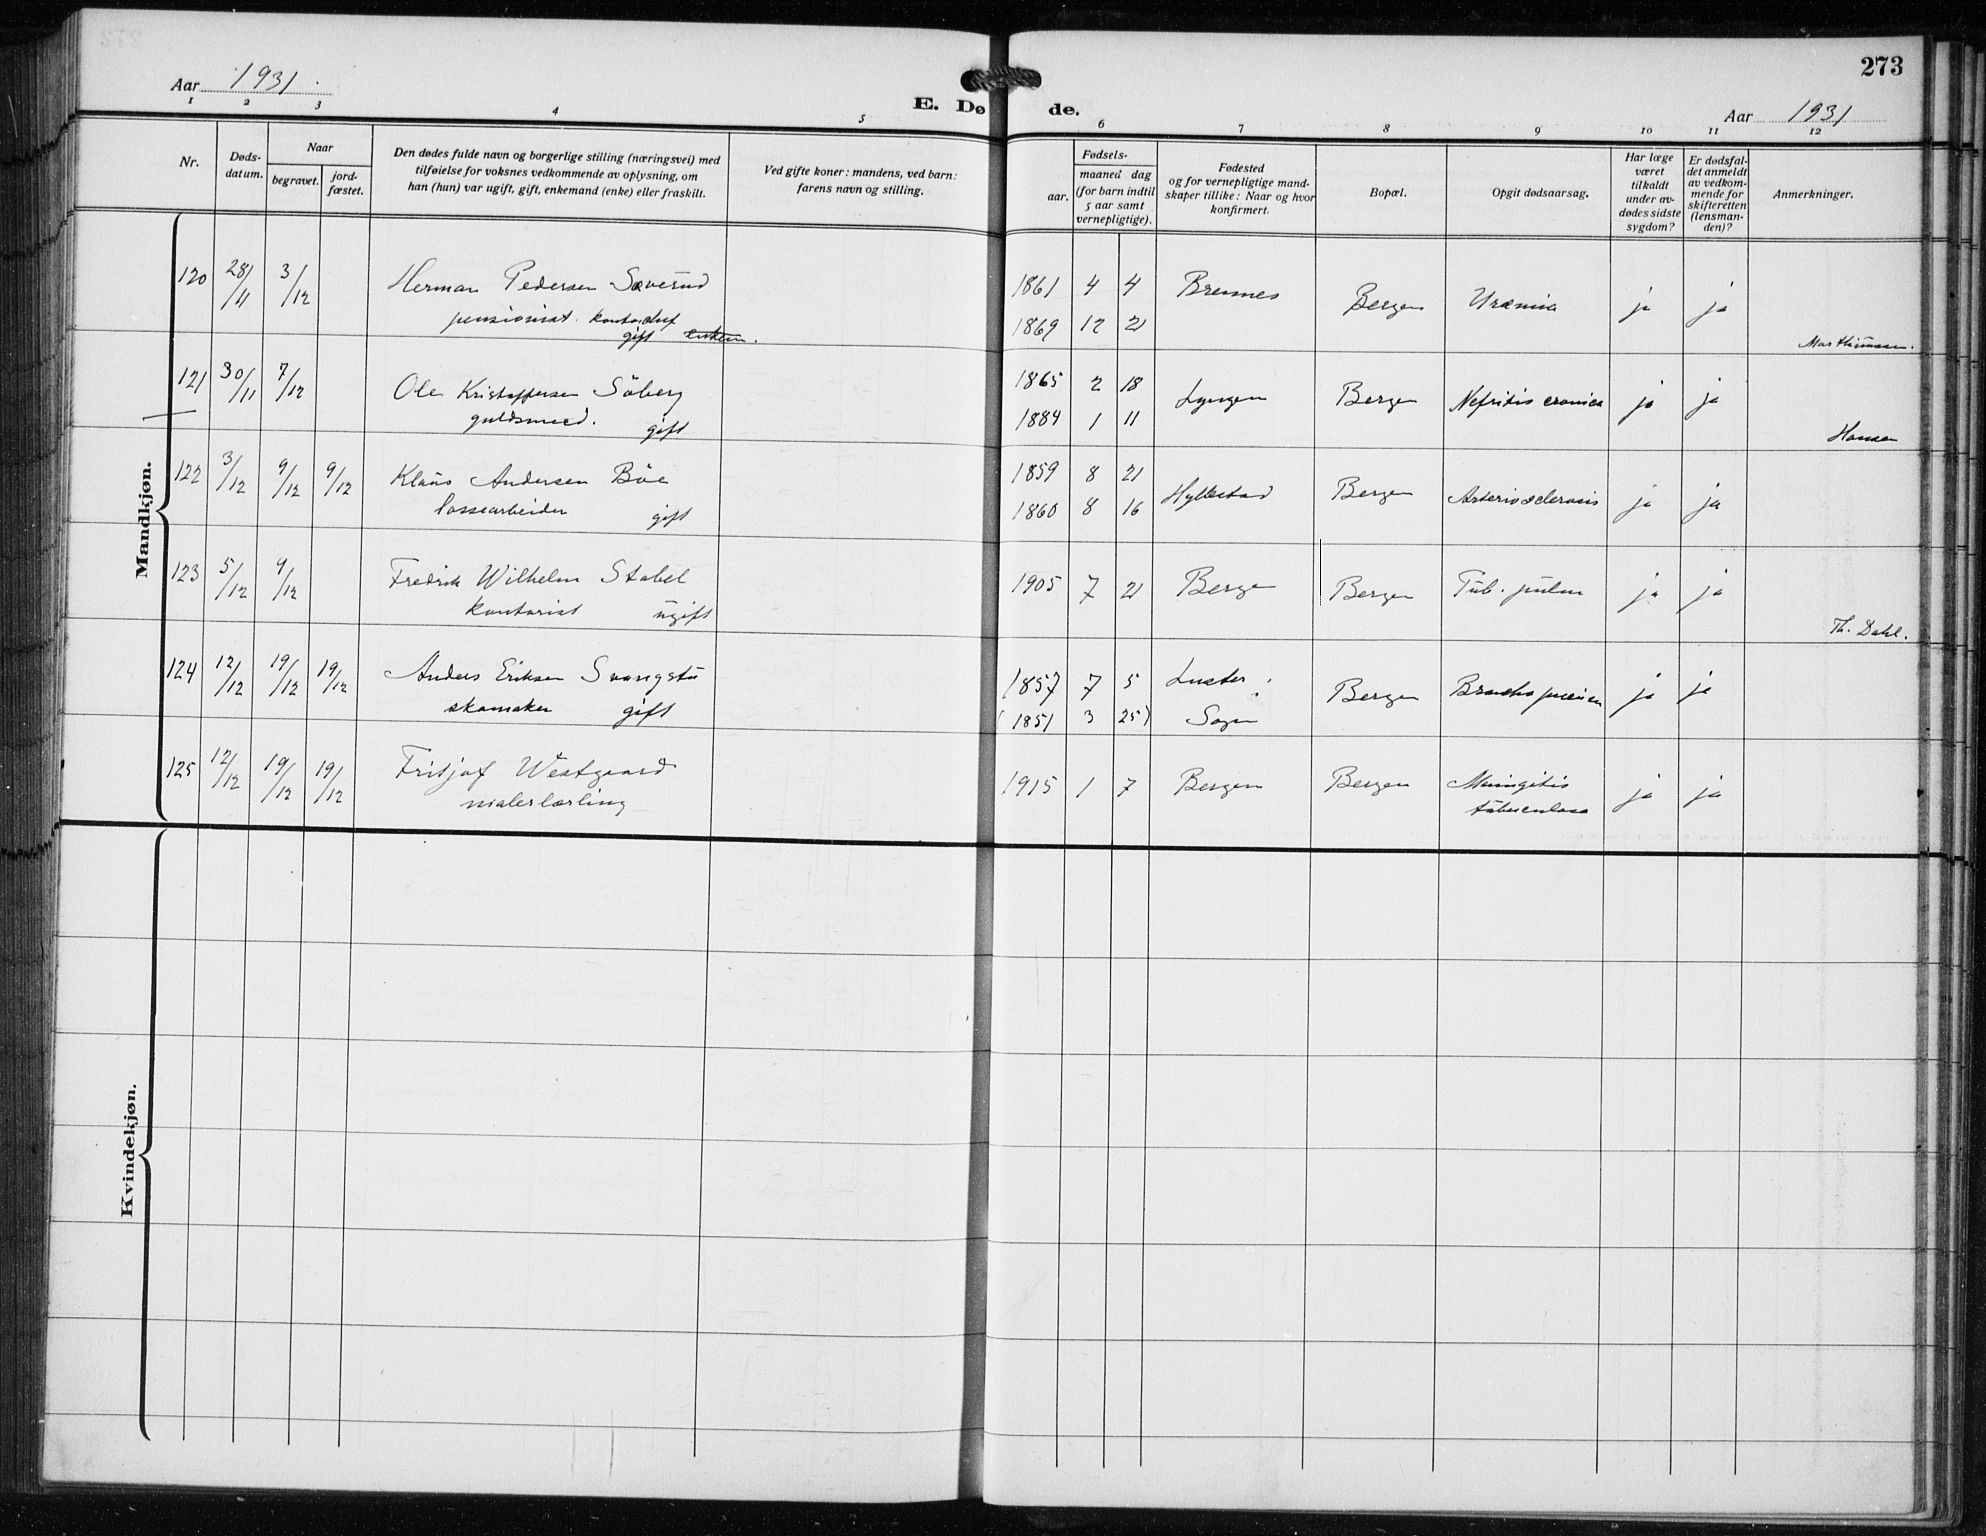 273
Aar 1931
E. Døde.
Aar 1931
1 2 3 4 5 6 7 8 9 10 11 12
Nr.
Døds-
datum.
Naar
begravet.
jord-
fæstet.
Den dødes fulde navn og borgerlige stilling (næringsvei) med
tilføielse for voksnes vedkommende av oplysning, om
han (hun) var ugift, gift, enkemand (enke) eller fraskilt.
Ved gifte koner: mandens, ved barn:
farens navn og stilling.
Fødsels-
aar.
maaned dag
(for barn indtil
5 aar samt
vernepligtige).
Fødested
og for vernepligtige mand-
skaper tillike: Naar og hvor
konfirmert.
Bopæl.
Opgit dødsaarsag.
Har læge
været
tilkaldt
under av-
dødes sidste
sygdom?
Er dødsfal-
det anmeldt
av vedkom-
mende for
skifteretten
(lensman-
den)?
Anmerkninger.
Mandkjøn.
120 28/11 3/12 Herman Pedersen Sæverud 1861 4 4 Bremnes Bergen Uræmia ja ja
pensionist. gift 1869 12 21
121 30/11 7/12 Ole Kristoffersen Söberg 1865 2 18 Lyngen Bergen Nefritis cronica ja ja
guldsmed. gift 1884 1 11 Hansen
122 3/12 9/12 9/12 Klaus Andersen Böe 1859 8 21 Hyllestad Bergen Arteriosclerosis ja ja
lossearbeider gift 1860 8 16
123 5/12 9/12 Fredrik Wilhelm Stabel 1905 7 21 Bergen Bergen Tub. pulm ja ja
kontorist ugift Th. Dahl.
124 12/12 19/12 19/12 Anders Eriksen Svangstu 1857 7 5 Luster Bergen ja ja
skomaker gift (1851 3 25) Sogn
125 12/12 19/12 19/12 Fritjof Westgaard 1915 1 7 Bergen Bergen Meningitis ja ja
malerlærling tuberculosa
Kvindekjøn.